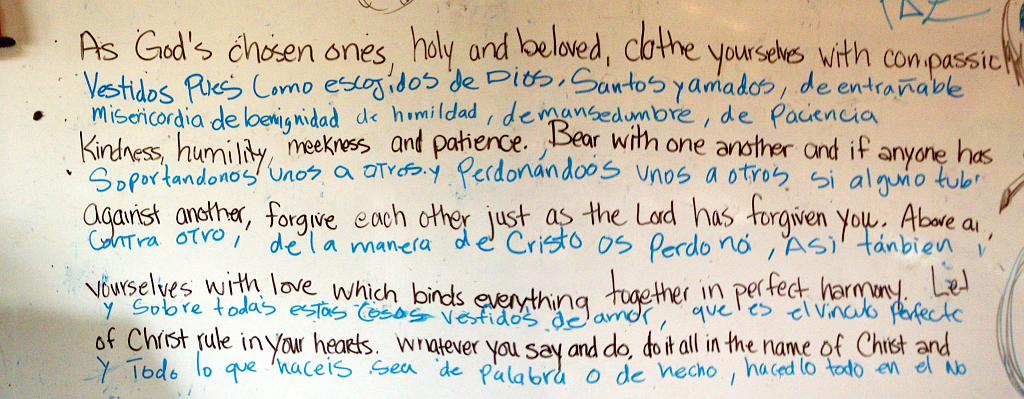 As God's chosen ones, holy and beloved, clothe yourselves with compassic
Vestidos Pues Como escojidos de Dios, Santos y amados, de entrañable
misericordia de benignidad de homildad, de mansedumbre, de Paciencia
Kindness, humility, meekness and patience. Bear with one another and if anyone has
Soportandonos unos a otros y Perdonándoos unos a otros si alguno tub
against another, forgive each other just as the Lord has forgiven you. Above al
Contra otro, de la manera de Cristo os Perdonó, Asi tanbien
yourselves with love which binds everything together in perfect harmony. Let
y sobre todas estas Cosas vestidos de amor, que es el vinculo Perfecto
of Christ rule in your hearts. Whatever you say and do, do it all in the name of Christ and
Y Todo lo que haceis sea de Palabra o de hecho, hacedlo todo en el No